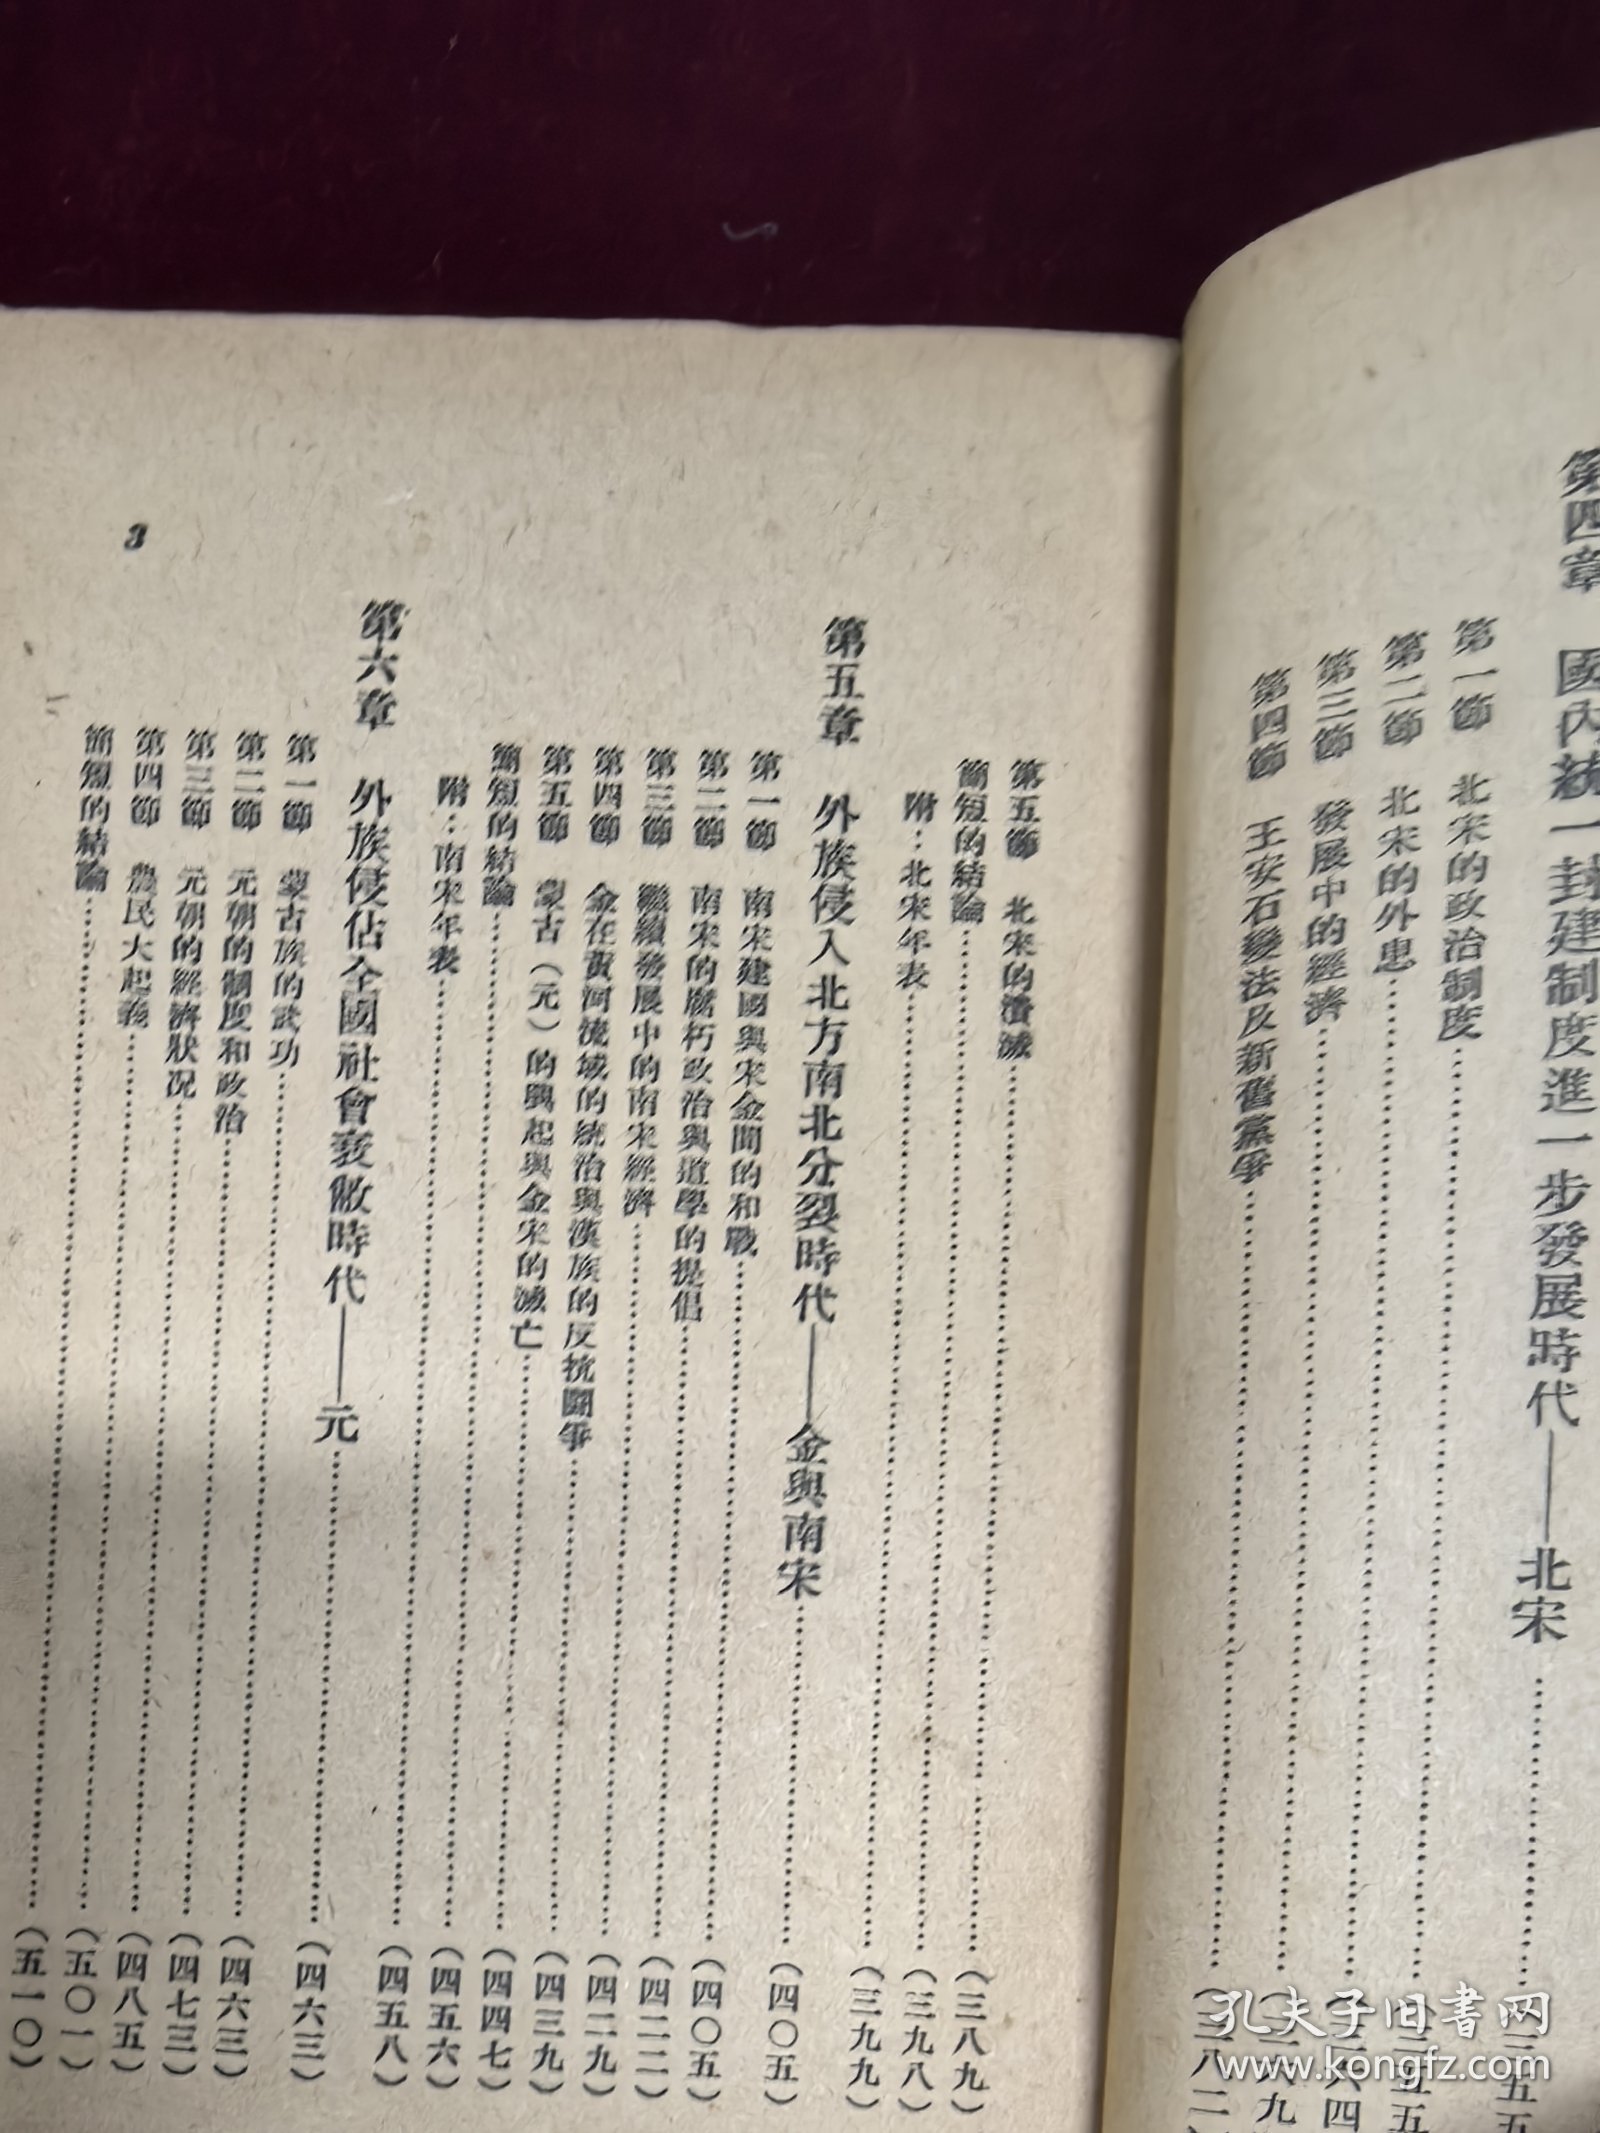 第四章　國內統一封建制度進一步發展時代——北宋
第一節　北宋的政治制度
第二節　北宋的外患
第三節　發展中的經濟
第四節　王安石變法及新舊黨爭
第五節　北宋的潰滅……（三八九）
簡短的結論……（三九八）
附：北宋年表……（三九九）
第五章　外族侵入北方南北分裂時代——金與南宋……（四〇五）
第一節　南宋建國與宋金間的和戰……（四〇五）
第二節　南宋的腐朽政治與道學的提倡……（四二二）
第三節　繼續發展中的南宋經濟……（四二九）
第四節　金在黃河流域的統治與漢族的反抗鬭爭……（四三九）
第五節　蒙古（元）的興起與金宋的滅亡……（四四七）
簡短的結論……（四五六）
附：南宋年表……（四五八）
第六章　外族侵佔全國社會衰敝時代——元……（四六三）
第一節　蒙古族的武功……（四六三）
第二節　元朝的制度和政治……（四七三）
第三節　元朝的經濟狀况……（四八五）
第四節　農民大起義……（五〇一）
簡短的結論……（五一〇）
3
孔夫子旧書网
www.kongfz.com